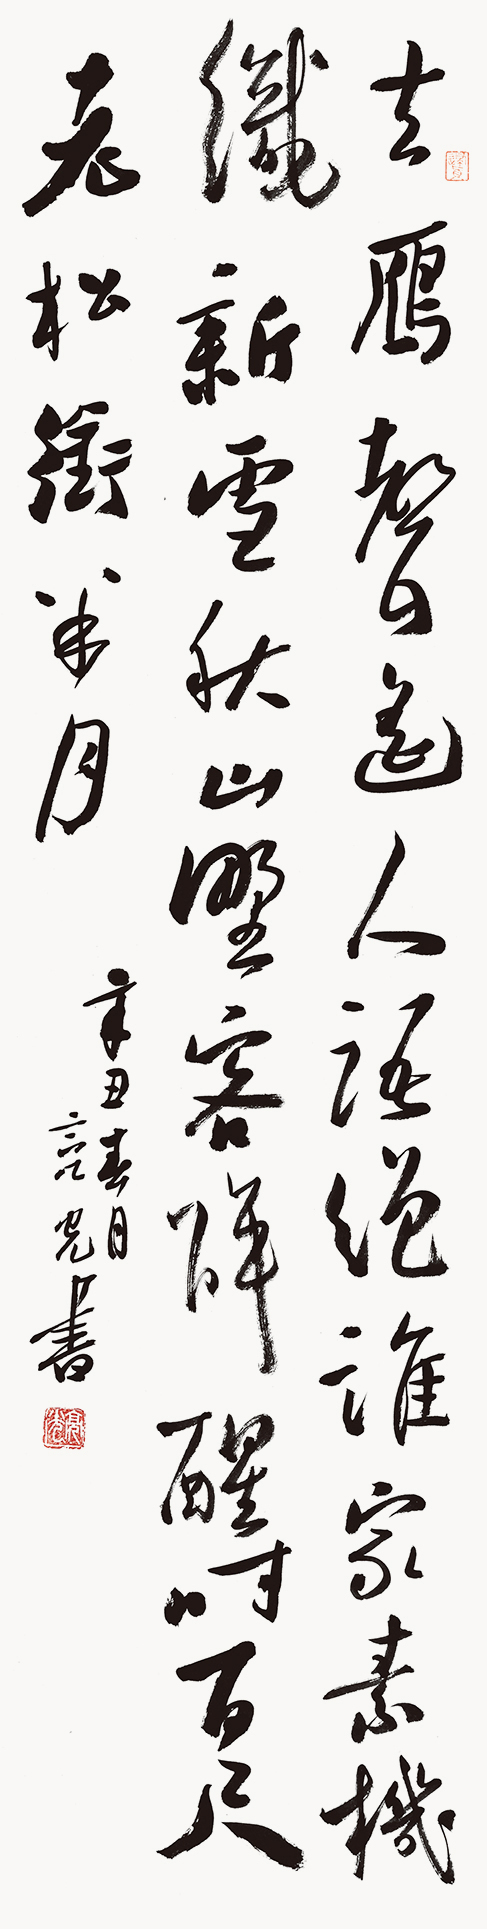 去雁聲遙人語絕誰家素機
織新雪秋山野客醉醒時百尺
老松銜半月
辛丑春月
亮光書